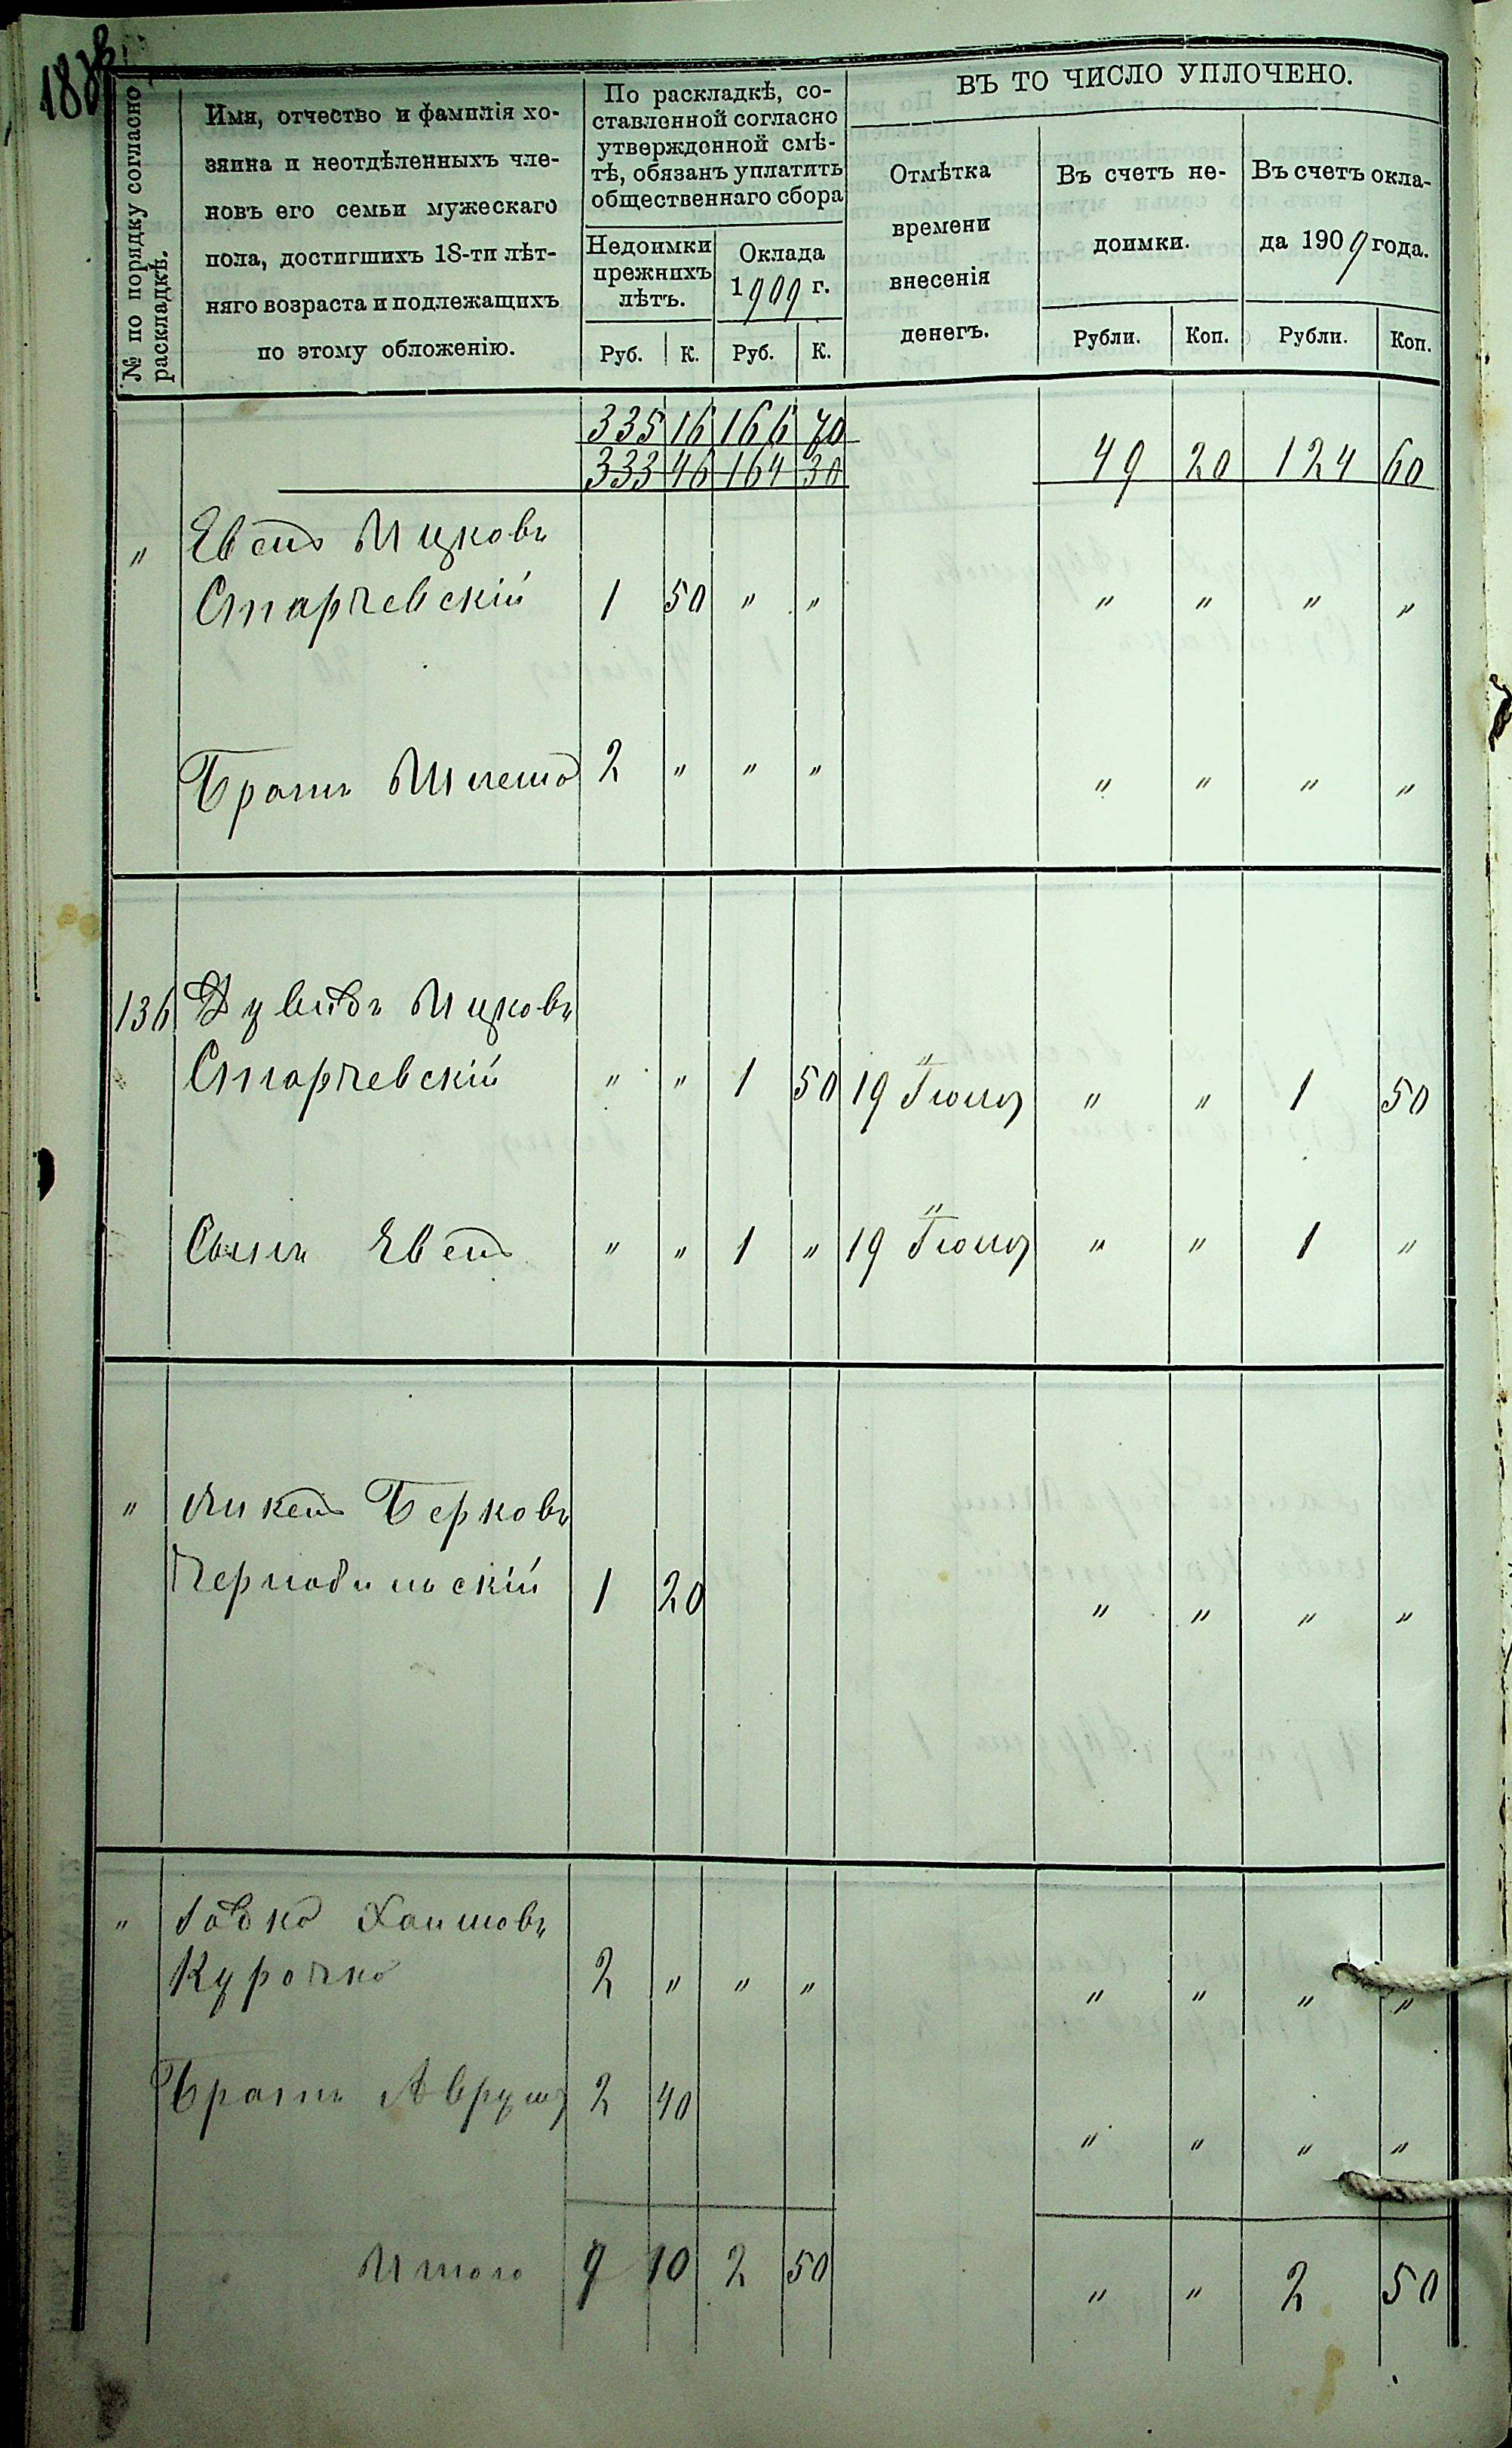 ВЪ ТО ЧИСЛО УПЛОЧЕНО.
№ по порядку согласно
раскладкѣ.
Имя, отчество и фамилія хо-
зяина и неотдѣленныхъ чле-
новъ его семьи мужескаго
пола, достигшихъ 18-ти лѣт-
няго возраста и подлежащихъ
по этому обложенію.
По раскладкѣ, со-
ставленной согласно
утвержденной смѣ-
тѣ, обязанъ уплатить
общественнаго сбора
Недоимки
прежнихъ
лѣтъ.
Оклада
1909 г.
Отмѣтка
времени
внесенія
денегъ.
Въ счетъ не-
доимки.
Въ счетъ окла-
да 1909 года.
Руб. К. Руб. К. Рубли. Коп. Рубли. Коп.
335 16 166 70
333 46 164 30 49 20 124 60
" Ицковъ
Старчевскій 1 50 " " " " " "
Братъ 2 " " " " " " "
136 Дувидъ Ицковъ
Старчевскій " " 1 50 19 Іюня " " 1 50
Сынъ " " 1 " 19 Іюня " " 1 "
" Берковъ
Чернобыльскій 1 20 " " " "
" Хаимовъ
Курочка 2 " " " " " " "
Братъ Аврумъ 2 40 " " " "
Итого 9 10 2 50 " " 2 50